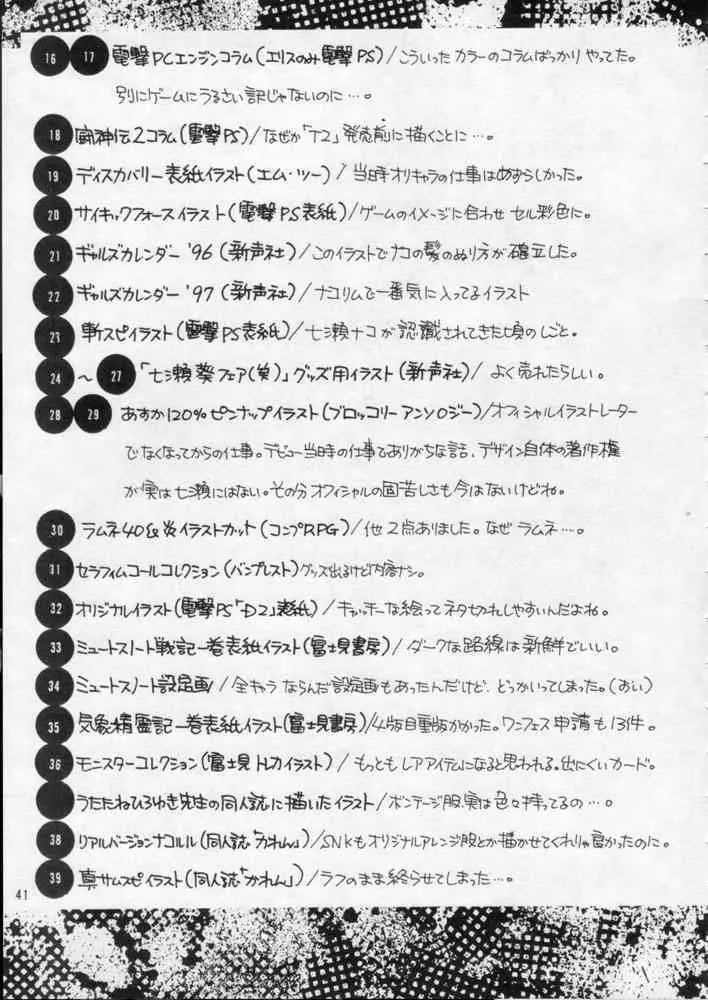 16 17 電撃PCエンジンコラム(エリスのみ電撃PS)/こういったカラーのコラムばっかりやってた。
別にゲームにうるさい訳じゃないのに…。
18 闘神伝2コラム(電撃PS)/なぜか「T2」発売前に描くことに…。
19 ディスカバリー表紙イラスト(エム・ツー)/当時オリキャラの仕事はめずらしかった。
20 サイキックフォースイラスト(電撃PS表紙)/ゲームのイメージに合わせセル彩色に。
21 ギャルズカレンダー'96(新声社)/このイラストでナコの髪のぬり方が確立した。
22 ギャルズカレンダー'97(新声社)/ナコリムで一番気に入ってるイラスト
23 斬スピイラスト(電撃PS表紙)/七瀬ナコが認識されてきた頃のしごと。
24 〜 27 「七瀬葵フェア(笑)」グッズ用イラスト(新声社)/よく売れたらしい。
28 29 あすか120%ピンナップイラスト(ブロッコリーアンソロジー)/オフィシャルイラストレーター
でなくなってからの仕事。デビュー当時の仕事でありがちな話、デザイン自体の著作権
が実は七瀬にはない。その分オフィシャルの固苦しさも今はないけどね。
30 ラムネ40&炎イラストカット(コンプRPG)/他2点ありました。なぜラムネ…。
31 セラフィムコールコレクション(バンプレスト)グッズ出るけど内容ナシ。
32 オリジナルイラスト(電撃PS「D2」表紙)/キャッチーな絵ってネタ切れしやすいんだよね。
33 ミュートスノート戦記一巻表紙イラスト(富士見書房)/ダークな路線は新鮮でいい。
34 ミュートスノート設定画/全キャラならんだ設定画もあったんだけど、どっかいってしまった。(おい)
35 気象精霊記一巻表紙イラスト(富士見書房)/4版目重版がかった。ワンフェス申請も13件。
36 モンスターコレクション(富士見トレカイラスト)/もっともレアアイテムになると思われる。出にくいカード。
うたたねひろゆき先生の同人誌に描いたイラスト/ボンテージ服、実は色々持ってるの…。
38 リアルバージョンナコルル(同人誌「かれん」)/SNKもオリジナルアレンジ服とか描かせてくれりゃ良かったのに。
39 真サムスピイラスト(同人誌「かれん」)/ラフのまま終らせてしまった…。
41